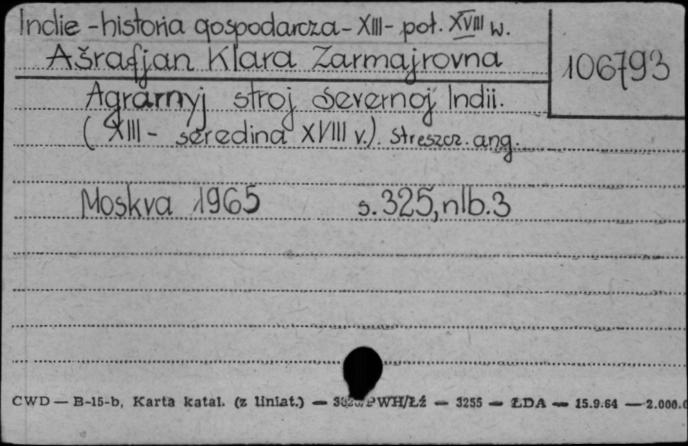 Indie - historia gospodarcza - XIII - poł. XVIII w.
Ašrafjan Klara Zarmajrovna
106793
Agrarnyj stroj Severnoj Indii.
( XIII - seredina XVIII v.). streszcz. ang.
Moskva 1965 s. 325, nlb. 3
CWD — B-15-b, Karta katal. (z liniat.) — PWH/Łż — 3255 — ŁDA — 15.9.64 — 2.000.0